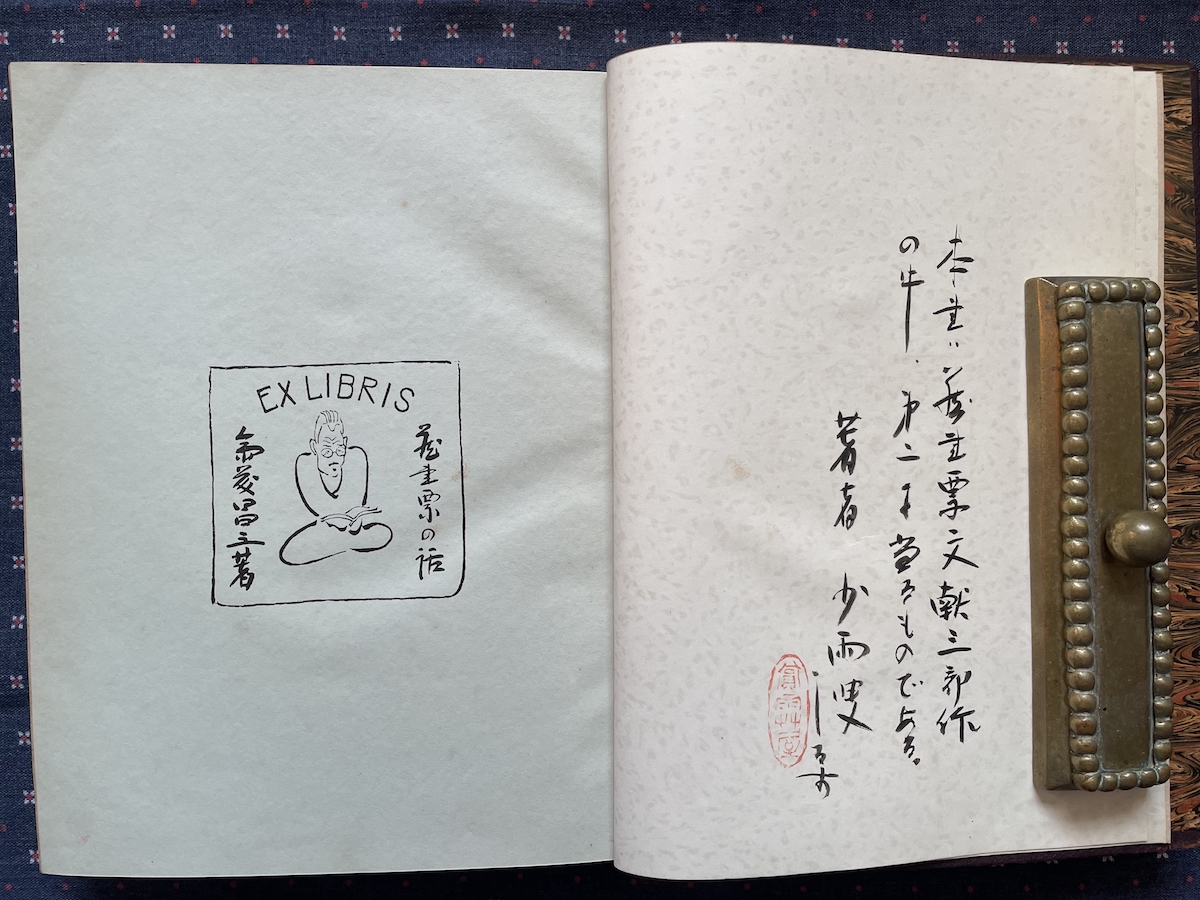 EX LIBRIS
蔵書票の話
斎藤昌三著
本書は蔵書票文献三部作
の中、第二に当るものである。
著者 少雨叟
しるす